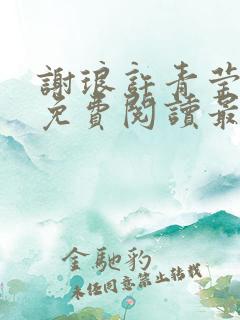 謝琅許青瑩
免費閱讀最
金馳豹
未經同意禁止轉載